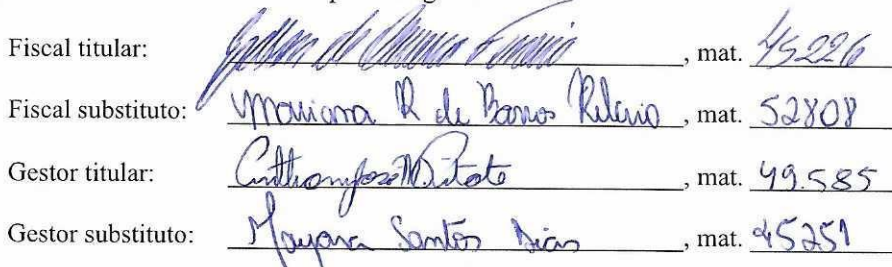 Fiscal titular: de , mat. 45226
Fiscal substituto: Mariana R de Barros Ribeiro, mat. 52808
Gestor titular: , mat. 49.585
Gestor substituto: Mayara Santos Dias, mat. 45251